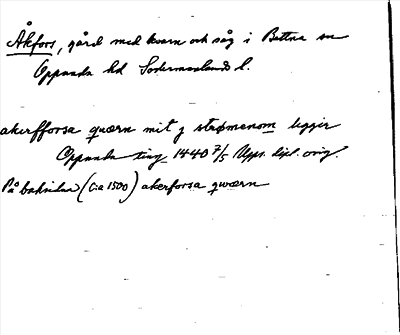 Åkfors, gård med kvarn och såg i Bettna sn
Oppunda hd Södermanlands l.
akerfforsa quærn mit j strømenom liggir
Oppunda ting 1440 7/5 Upps. dipl. orig.
På baksidan (Ca 1500) akerforsa qwærn